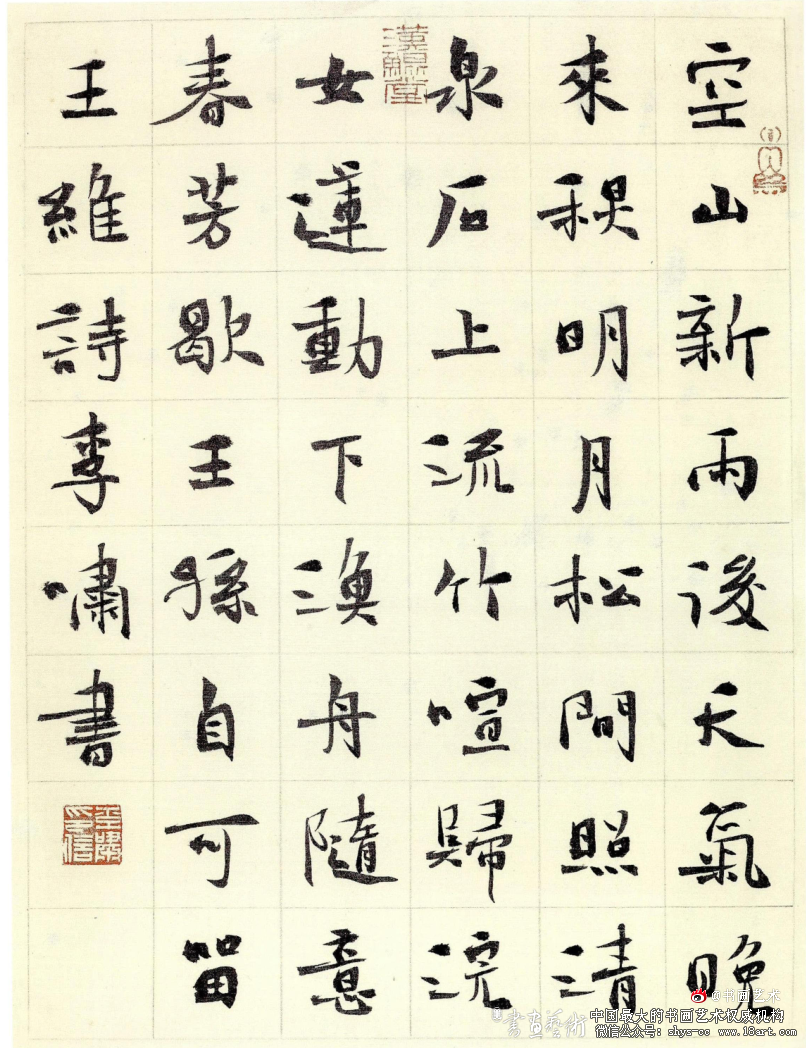 空山新雨後天氣晚
來秋明月松間照清
泉石上流竹喧歸浣
女蓮動下漁舟隨意
春芳歇王孫自可留
王維詩李嘯書
李嘯印信
@书画艺术
書画藝術
中国最大的书画艺术权威机构
微信公众号: shys-cc www.18art.com